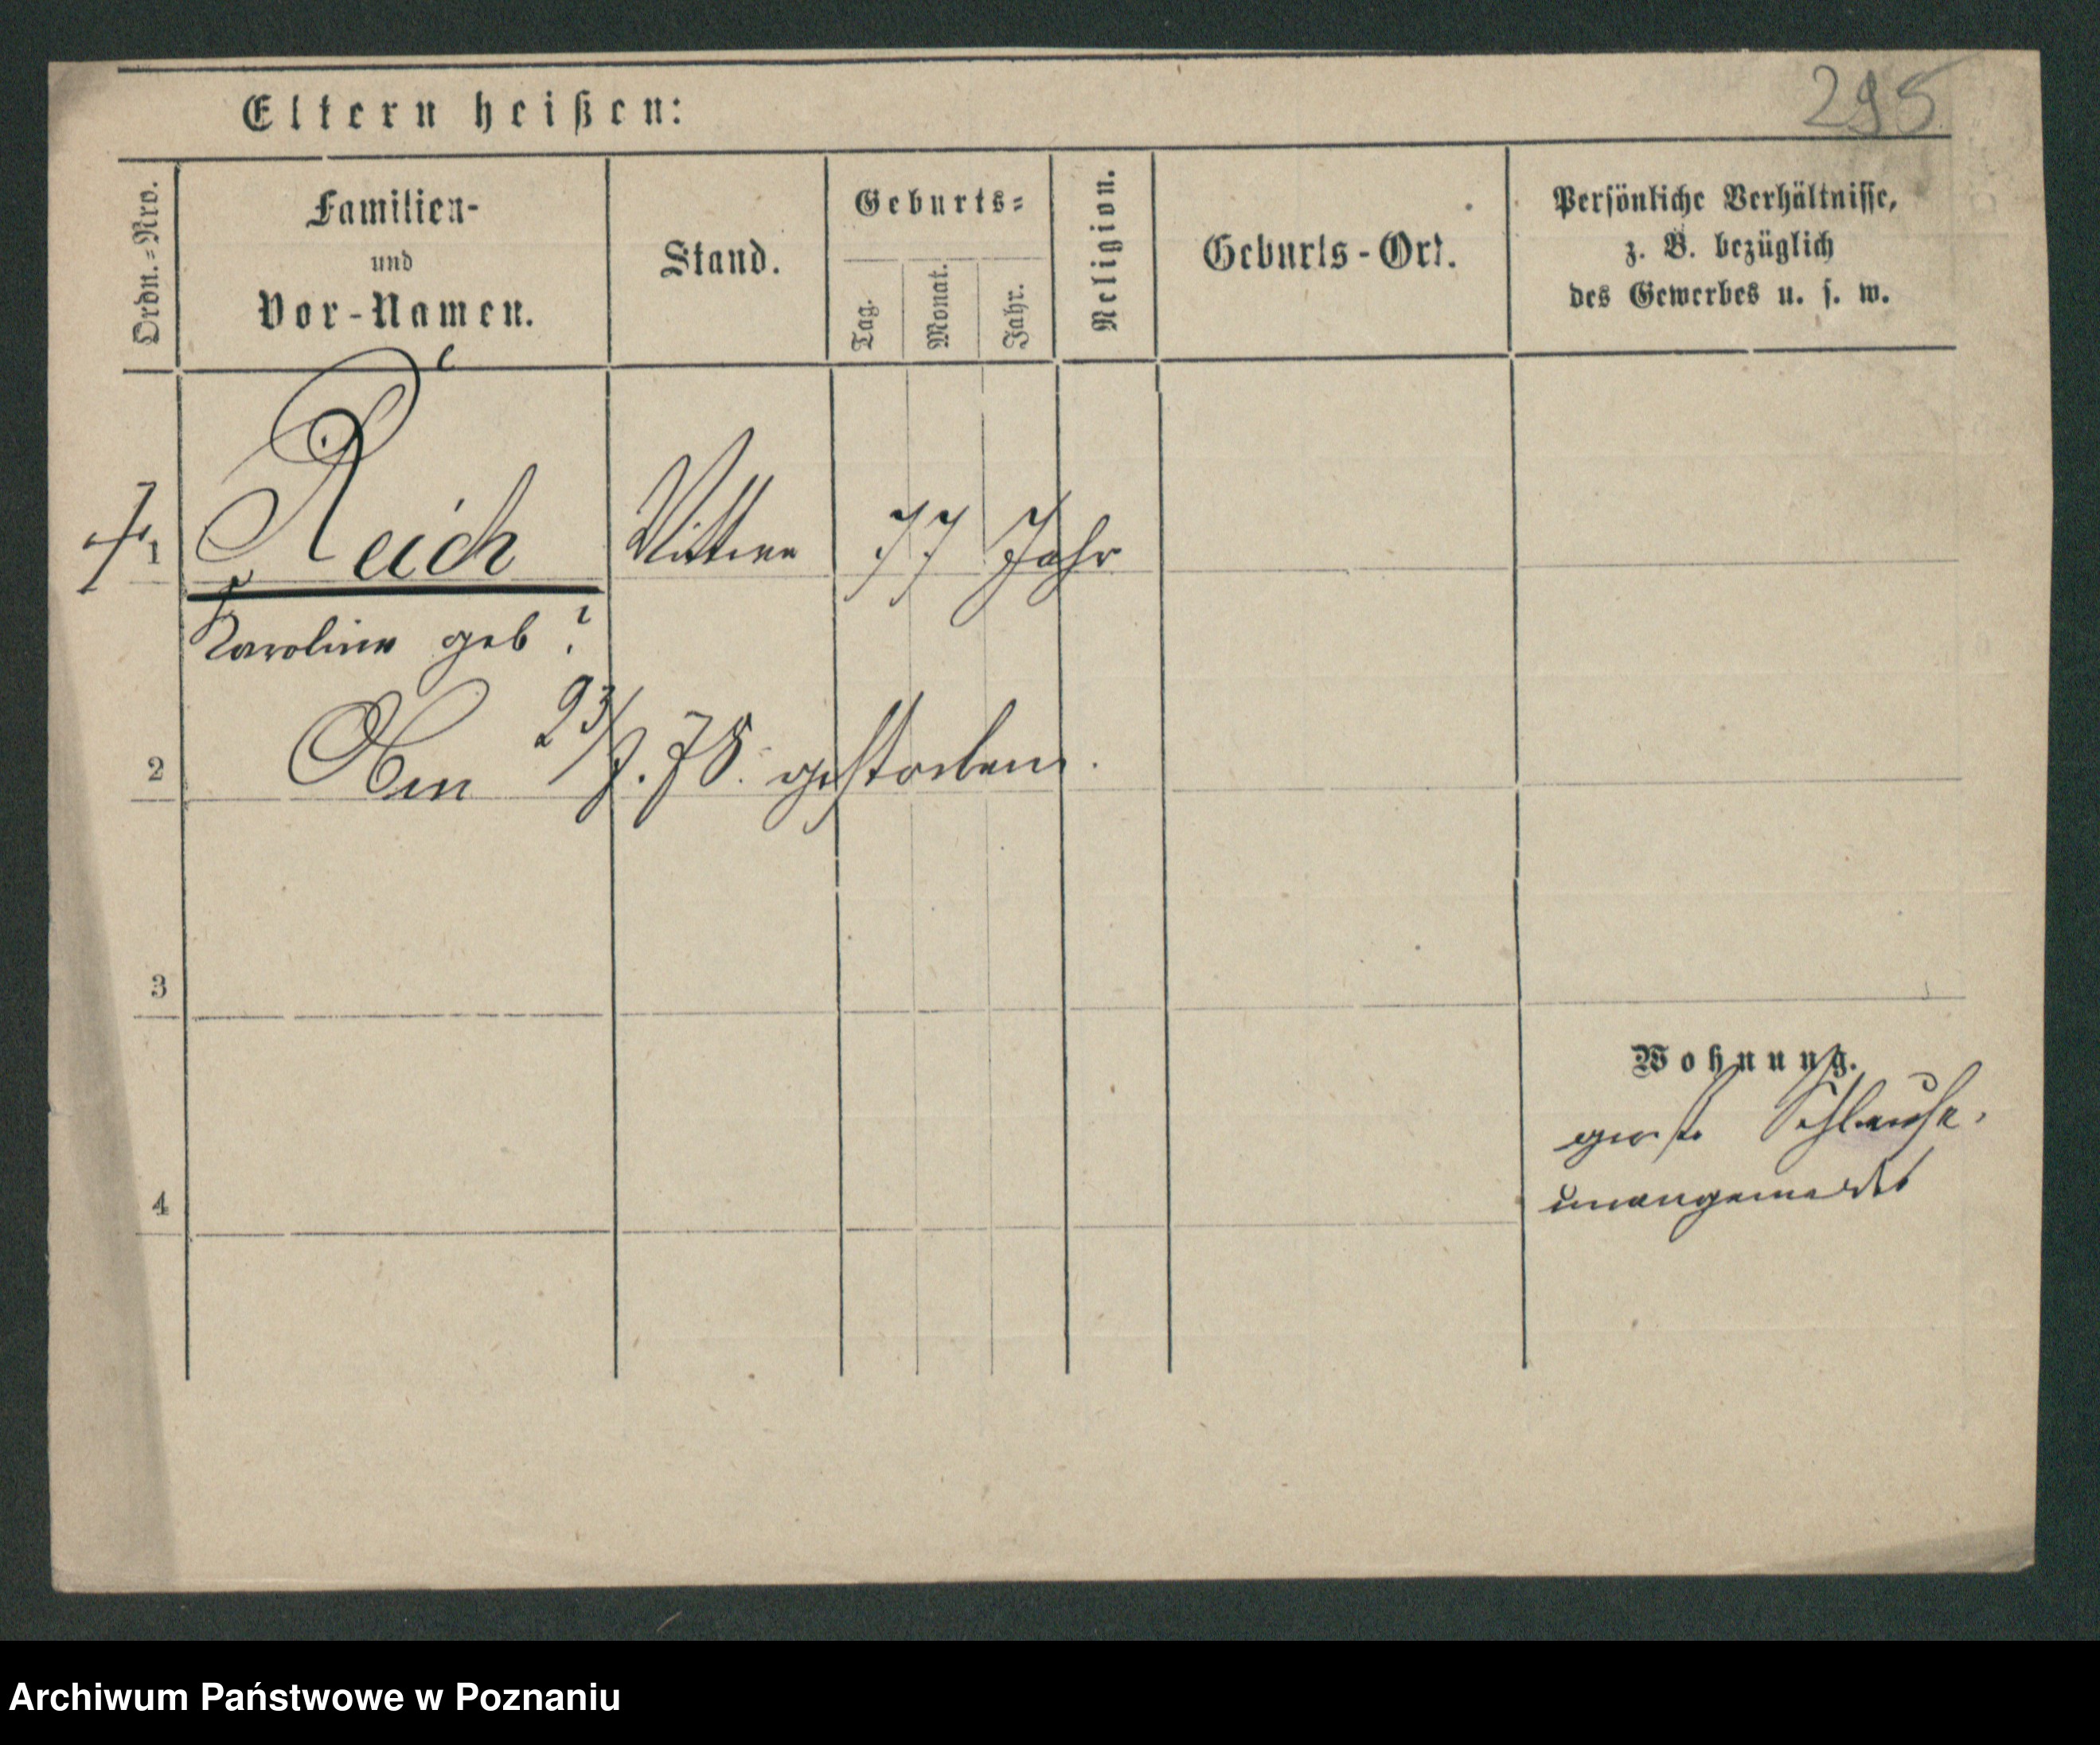 295
Eltern heißen:
Ordn.-Nro.
Familien-
und
Vor-Namen.
Stand.
Geburts-
Tag.
Monat.
Jahr.
Religion.
Geburts-Ort.
Persönliche Verhältnisse,
z. B. bezüglich
des Gewerbes u. s. w.
1 Reich Wittwe 77 Jahr
Karoline geb ?
2 Am 23/7. 78. gestorben.
3
Wohnung.
4
Archiwum Państwowe w Poznaniu